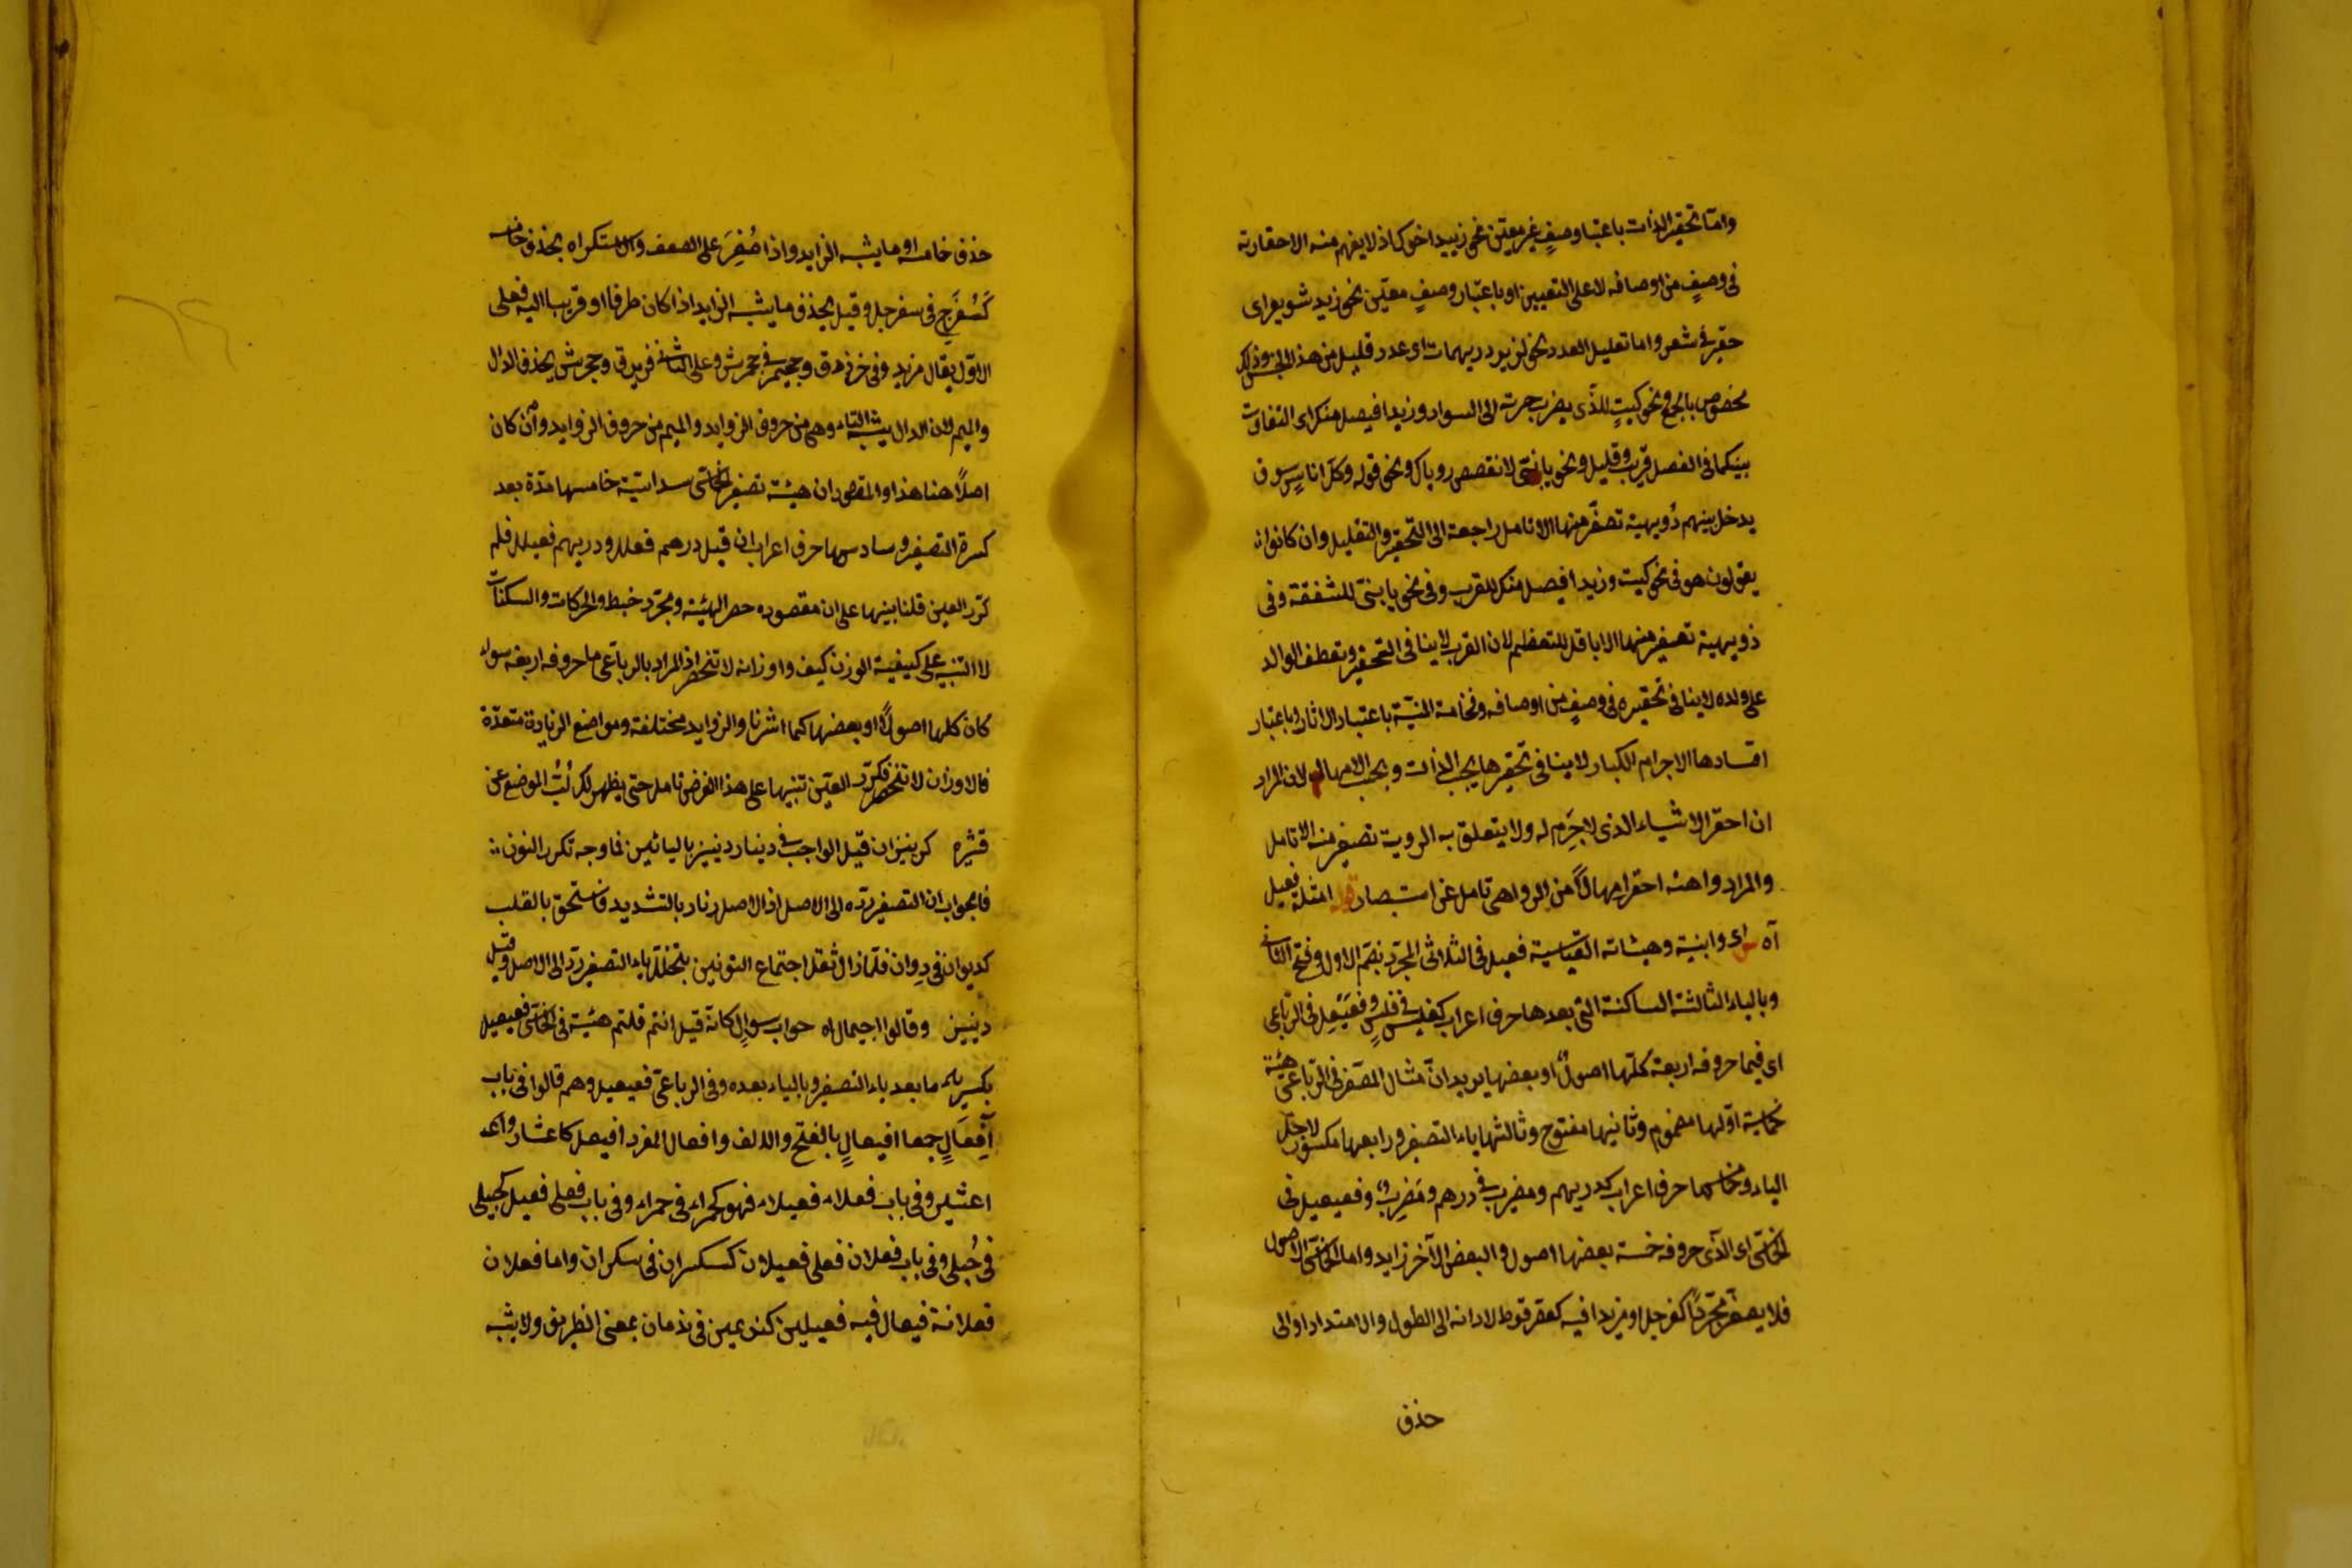 واما تحقير الذات باعتبار وصفٍ غير معين نحو زييد اخوك اذ لا يفهم منه الا حقارته
فى وصفٍ من اوصافه لا على التعيين او باعتبار وصفٍ معيّن نحو زيد شويعر اى
حقير فى شعر واما تعليل العدد نحو لزيد دريهمات اى عدد قليل من هذا الجنس وذلك
مخصوص بالجمع ونحو كميتٍ للذى يضرب حمرته الى السواد وزيد افيصل منك اى التفاوت
بينكما فى الفصل قريب وقليل ونحو يا بنىّ لا تقصص روياك ونحو قوله وكل اناسٍ سوف
يدخل بينهم دُويهية تصفرّ منها الانامل راجعة الى التحقير والتقليل وان كانوا
يقولون هو فى نحو كميت وزيد افيصل منك للقرب وفى نحو يا بنىّ للشفقة وفى
دويهية تصفير منها الاباقل للتعظيم لان القرب لا ينافى التحقير وتعطف الوالد
على ولده لا ينافى تحقيره فى وصفٍ من اوصافه وفخامة المنيّة باعتبار الاثار وباعتبار
افسادها الاجرام الكبار لا ينافى تحقيرها بحسب الذات وبحسب الامهال لان المراد
ان احقر الاشياء الذى لا جَرِم له ولا يتعلق به الروية تصفير منه الانامل
والمراد واهنه احقر امهالاً من الرواهى تامل عن استبصار قوله امثلة فعيل
آه اى وابنية وهيئاته القياسية فعيل فى الثلاثى المجرّد بضم الاول وفتح الثانى
وبالياء الثالثة الساكنة التى بعدها حرف اعراب كفليس فى فلسٍ وفعيعل فى الرباعى
اى فيما حروفه اربعة كلّها اصولٌ او بعضها يريد انّ مثال المصغر فى الرباعى هيئة
خماسية اوّلها مضموم وثانيها مفتوح وثالثها ياء التصغير ورابعها مكسور لاجل
الياء وخامسها حرف اعراب كدريهم ومضيرب فى درهم ومَضرِب وفعيعيل فى
الخماسى اى الذى حروفه خمسة بعضها اصول والبعض الآخر زايد واما الخماسى الاصول
فلا يصغر مجرّدًا كسفرجل او مزيدا فيه كعقرقوط لادائه الى الطول والامتداد او الى
حذف
حذف خامسه او ما يشبه الزايد واذا صُغِّرَ على الضعف والاستكراه بحذف خامسه
كَسُفَرَجٍ فى سفرجل وقيل بحذف ما يشبه الزايد اذا كان طرفا او قريبا اليه فعلى
الاوّل يقال فريزد فى فرزدق وجحيمر فى جحمرش وعلى الثانى فريزق وجحيرش بحذف الدال
والميم لان الدال يشبه التاء وهى من حروف الزوايد والميم من حروف الزوايد وان كان
اصلاً هنا هذا والمقصود ان هيئة تصغير الخماسى سداسيّة خامسها مدّة بعد
كسرة التصغير وسادسها حرف اعراب ان قيل درهم فعلل ودريهم فعيلل فلم
كرّر العين قلنا بينهما على ان مقصوده حصر الهيئة ومجرّد ضبط والحركات والسكنات
لا التنبيه على كيفية الوزن كيف واوزانه لا تنحصر اذ المراد بالرباعى ما حروفه اربعة سواء
كان كلها اصولاً او بعضها كما اشرنا والزوايد مختلفة ومواضع الزيادة متعدّدة
فالاوزان لا تنحصر فكرّر العين تنبيها على هذا الغرض تامل حتى يظهر لك لُبُّ الموضع عن
قشره كرنينيز ان قيل الواجب فى دينار دينيز باليائين فما وجه تكرر النون
فالجواب ان التصغير ردّه الى الاصل اذ الاصل دنار بالتشديد فاستحق بالقلب
كديوان فى دِوان فلمّا زال ثقل اجتماع النونين بتخلّل ياء التصغير ردّ الى الاصل وقيل
دنينير وقالوا اجيمال اه جواب سوالٍ كانّه قيل انتم قلتم هيئته فى الخماسى فعيعيل
بكسر ما بعد ياء التصغير وبالياء بعده وفى الرباعى فعيعيل وهم قالوا فى باب
اَفعالٍ جمعا افيعالٍ بالفتح والالف وافعال المفرد افيعل كاعشار واعد
اعشير وفى باب فعلاء فعيلاء فهو كحميراء فى حمراء وفى باب فعلى فعيلى كحبيلى
فى حُبلى وفى باب فعلان فعلى فعيلان كسكيران فى سكران واما فعلان
فعلانة فيعال فيه فعيلين كندىمين فى ندمان بمعنى الظريف ولا يشبه